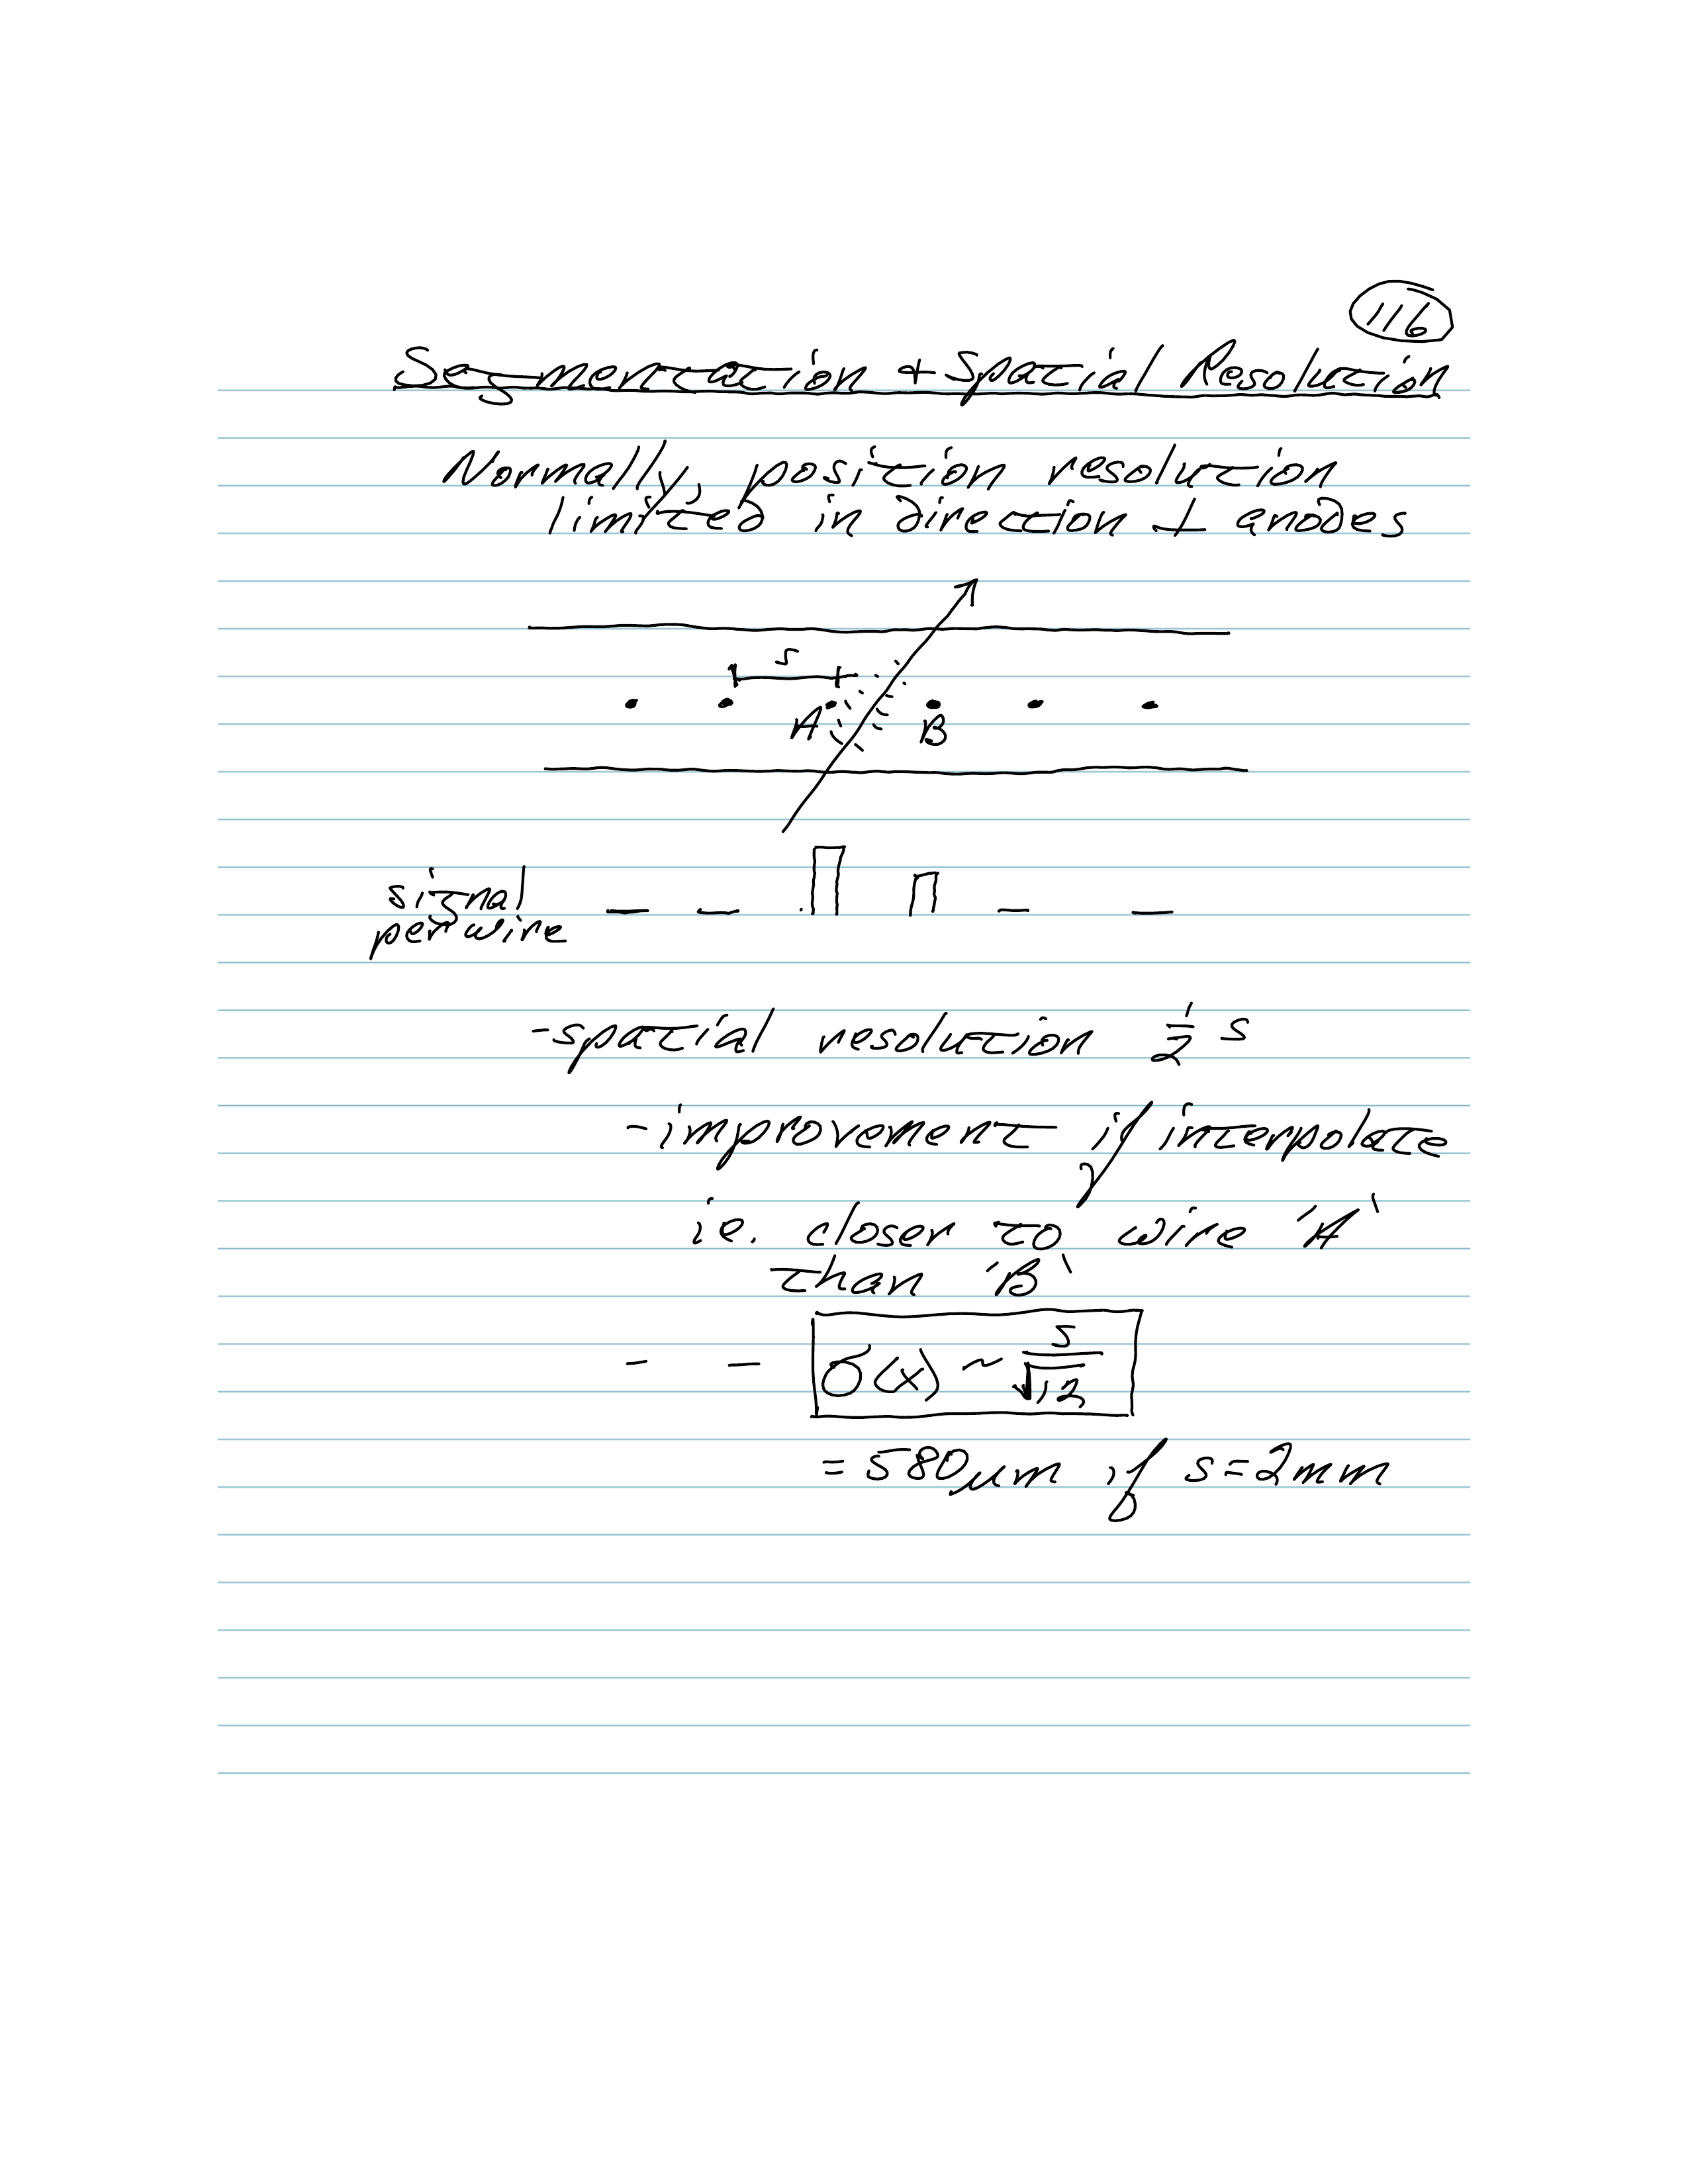 116
Segmentation + Spatial Resolution
Normally, position resolution
limited in direction ⊥ anodes
s
A B
signal
per wire
- spatial resolution 1/2 s
- improvement if interpolate
ie. closer to wire 'A'
than 'B'
- - σ(x) ~ s/√12
= 580μm if s=2mm